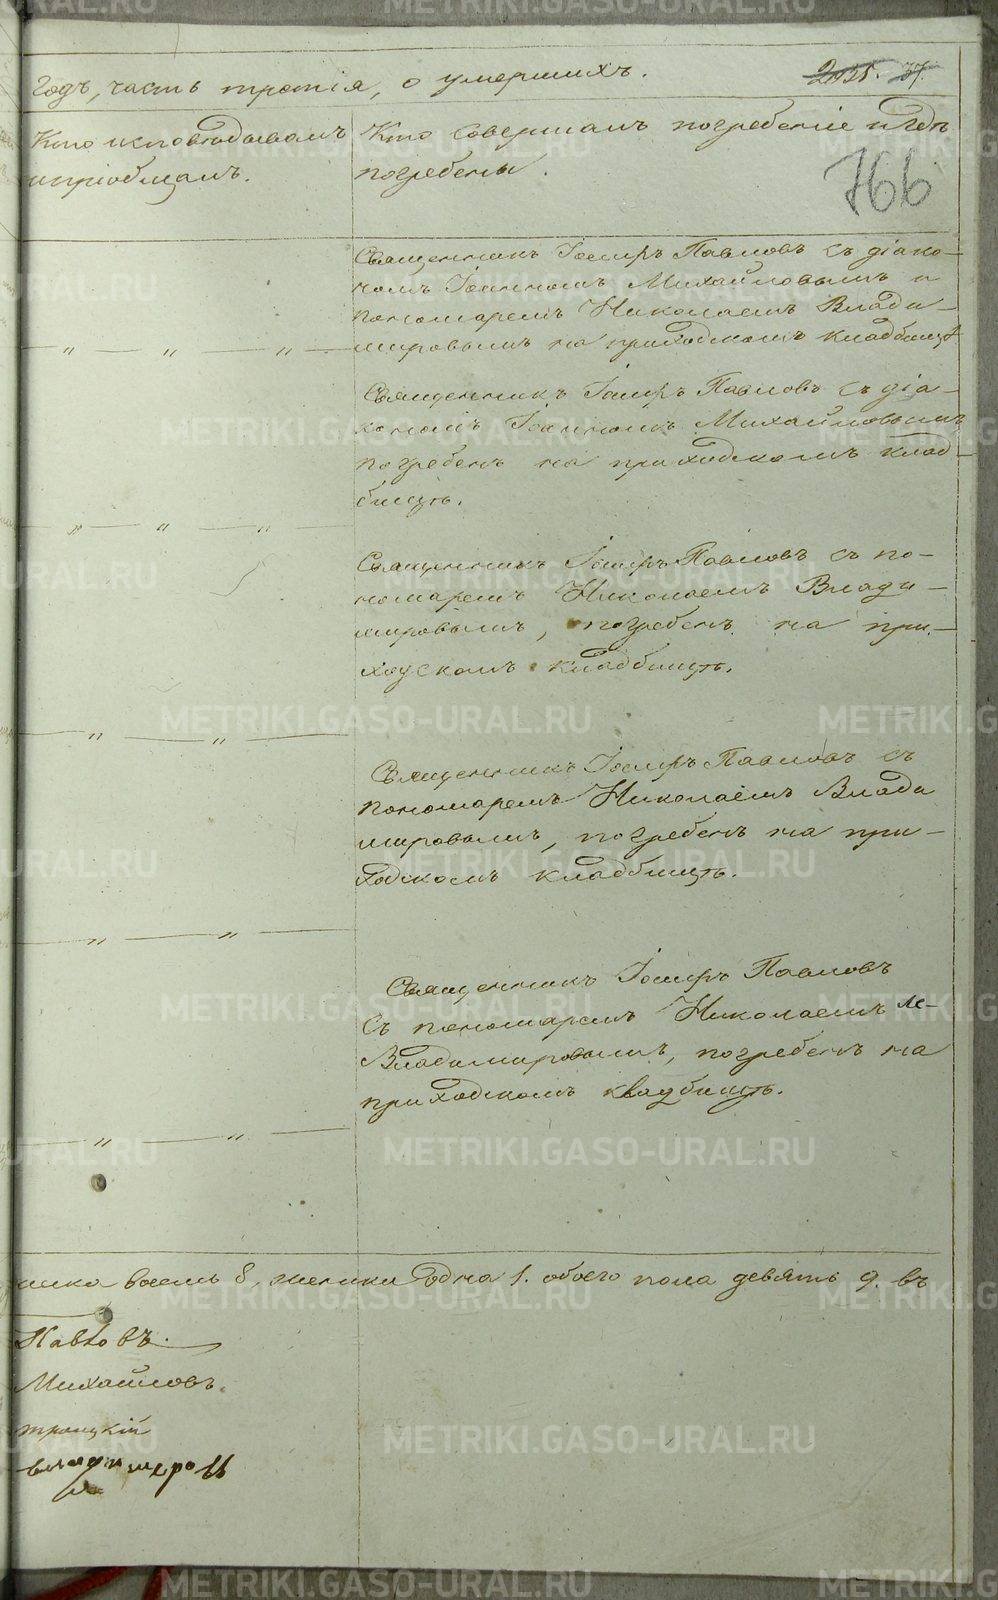 Годъ, часть третія, о умершихъ.
37.
766
Кто исповѣдывалъ
и пріобщалъ.
Кто совершалъ погребеніе и гдѣ
погребены.
Священникъ Іосифъ Павловъ съ діако-
номъ Іоанномъ Михайловымъ и
пономаремъ Николаемъ Влади-
мировымъ на приходскомъ кладбищѣ
Священникъ Іосифъ Павловъ съ діа-
кономъ Іоанномъ Михайловымъ
погребенъ на приходскомъ клад-
бищѣ.
Священникъ Іосифъ Павловъ съ по-
номаремъ Николаемъ Влади-
мировымъ, погребенъ на при-
ходскомъ кладбищѣ.
Священникъ Іосифъ Павловъ съ
пономаремъ Николаемъ Влади
мировымъ, погребенъ на при-
ходскомъ кладбищѣ.
Священникъ Іосифъ Павловъ
съ пономаремъ Николаемъ
Владимировымъ, погребенъ на
приходскомъ кладбищѣ.
восемь 8, женска одна 1. обоего пола девять 9. въ
Павловъ.
Михайловъ.
троицкій
владимеровъ
METRIKI.GASO-URAL.RU